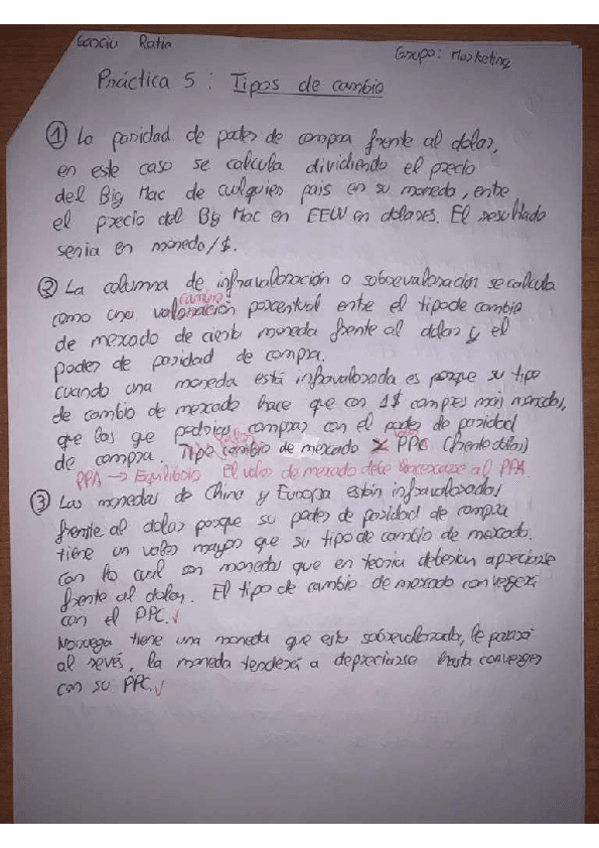 García Ratia
Grupo: Marketing
Práctica 5: Tipos de cambio
① La paridad de poder de compra frente al dolar,
en este caso se calcula dividiendo el precio
del Big Mac de culquier pais en su moneda, entre
el precio del Big Mac en EEUU en dolares. El resultado
seria en moneda/$.
② La columna de infravaloración o sobrevaloracion se calcula
cambio
como una valoración porcentual entre el tipo de cambio
de mercado de cierta moneda frente al dolar y el
poder de paridad de compra.
cuando una moneda está infravalorada es porque su tipo
de cambio de mercado hace que con 1$ compres más monedas,
que las que podrías comprar con el poder de paridad
de compra. Tipo cambio de mercado PPC (frente dolar)
PPA → Equilibrio El valor de mercado debe acercarse al PPA.
③ Las monedas de China y Europa están infravaloradas
frente al dolar porque su poder de paridad de compra
tiene un valor mayor que su tipo de cambio de mercado.
con lo cual son monedas que en teoría deberian apreciarse
frente al dolar. El tipo de cambio de mercado convegerá
con el PPC. ✓
Noruega tiene una moneda que esta sobrevalorada, le pasará
al revés, la moneda tenderá a depreciarse hasta converger
con su PPC. ✓